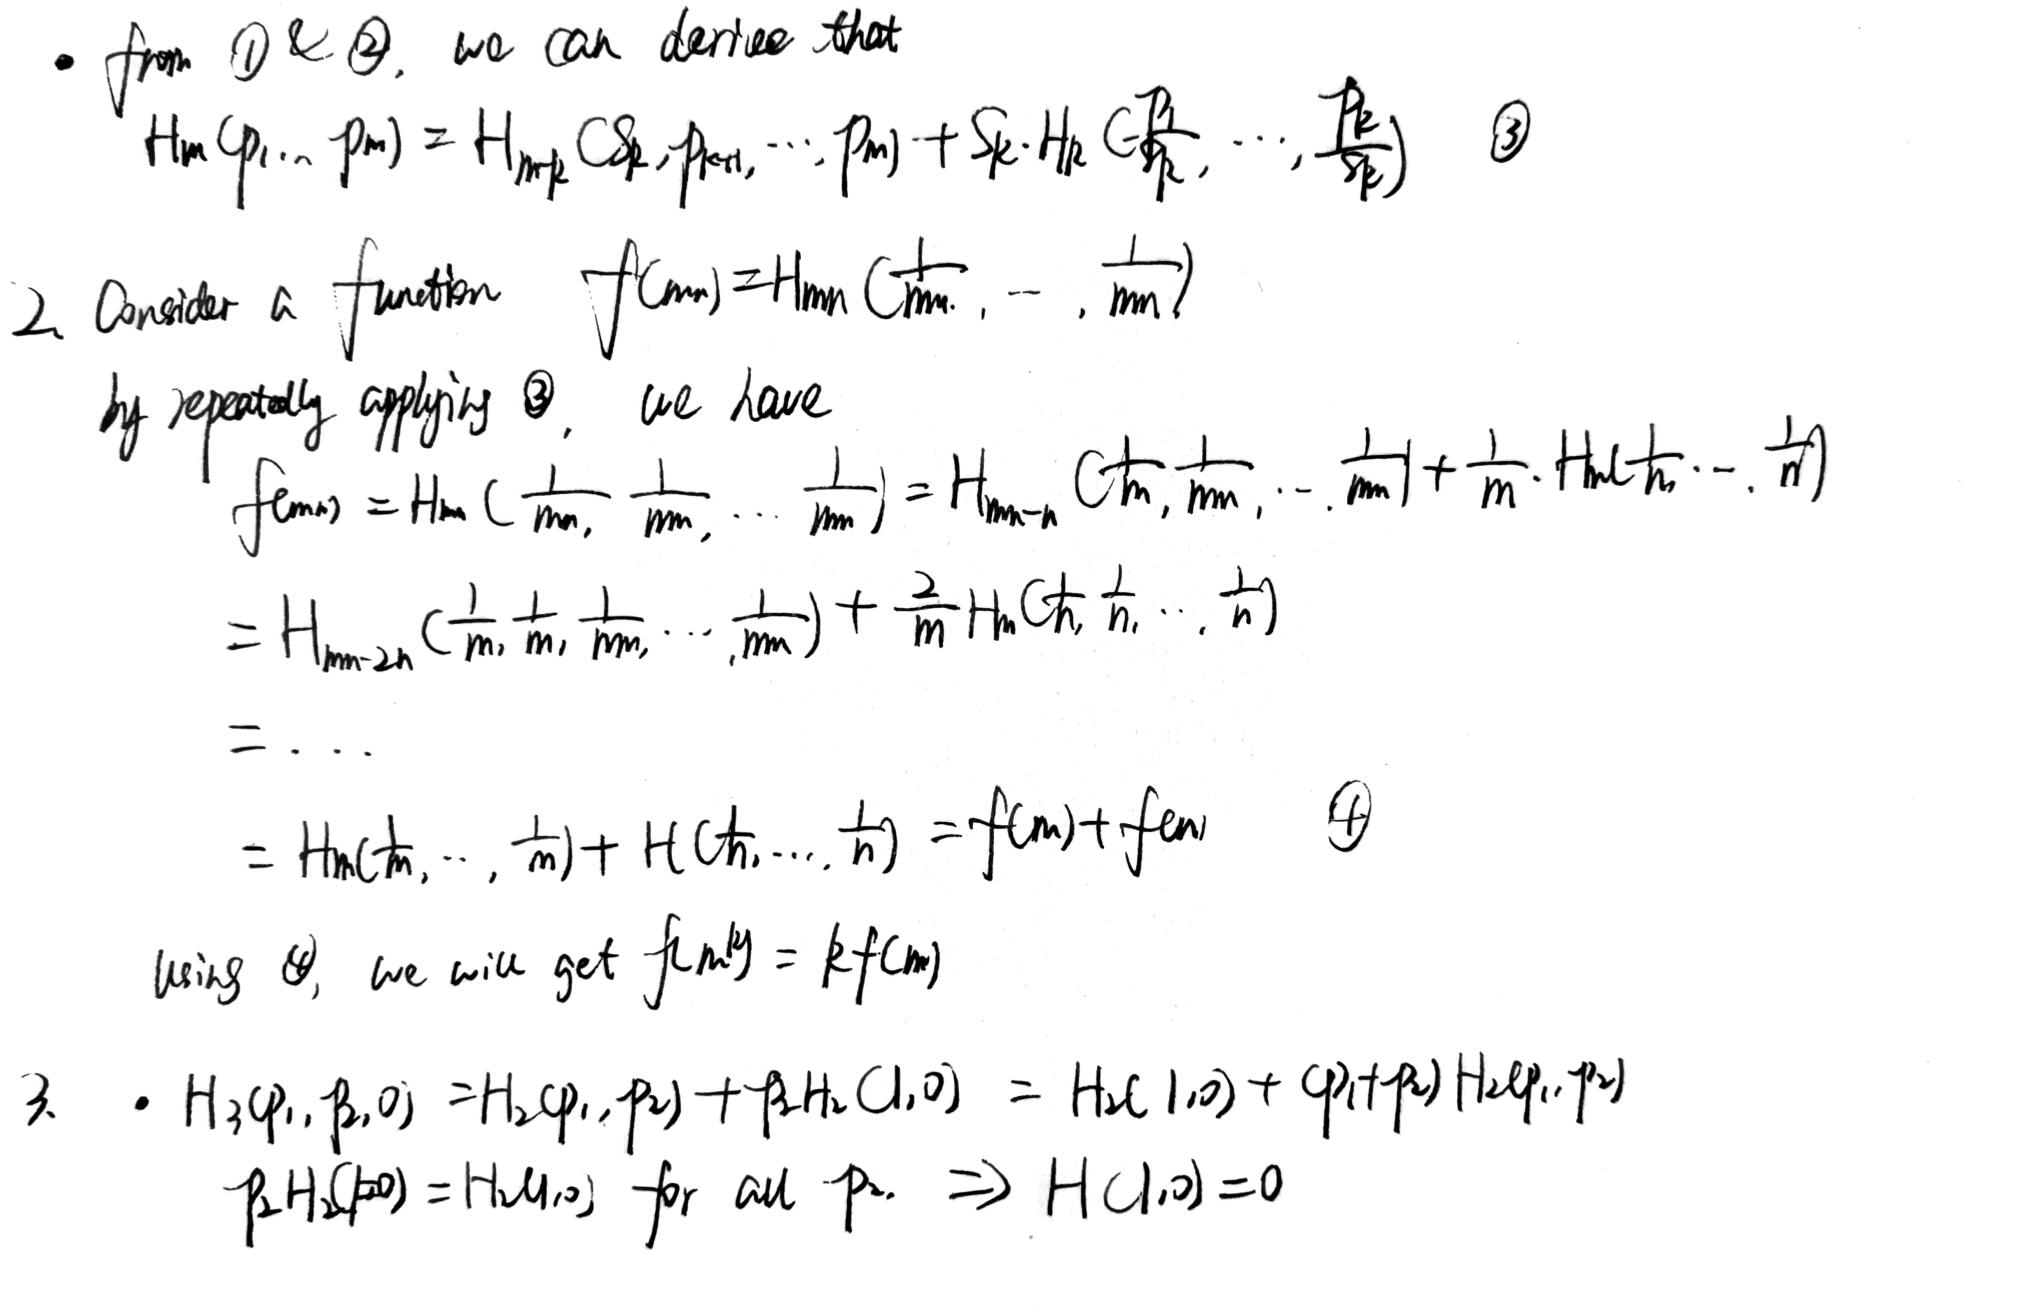 • from ① & ②, we can derive that
Hm (p₁... pm) = H_{m-k} (Sk, p_{k+1}, ..., pm) + Sk · Hk (p₁/Sk, ..., pk/Sk) ③
2. Consider a function f(mn) = Hmn (1/mn, ..., 1/mn)
by repeatedly applying ③, we have
f(mn) = Hmn (1/mn, 1/mn, ... 1/mn) = H_{mn-n} (1/m, 1/mn, ..., 1/mn) + 1/m · Hn (1/n, ..., 1/n)
= H_{mn-2n} (1/m, 1/m, 1/mn, ..., 1/mn) + 2/m Hn (1/n, 1/n, ..., 1/n)
= ...
= Hm (1/m, ..., 1/m) + H (1/n, ..., 1/n) = f(m) + f(n) ④
using ④, we will get f(m^k) = k f(m)
3. • H₃(p₁, p₂, 0) = H₂(p₁, p₂) + p₂ H₂ (1,0) = H₂(1,0) + (p₁+p₂) H₂(p₁, p₂)
p₂ H₂(1,0) = H₂(1,0) for all p₂. ⇒ H(1,0) = 0